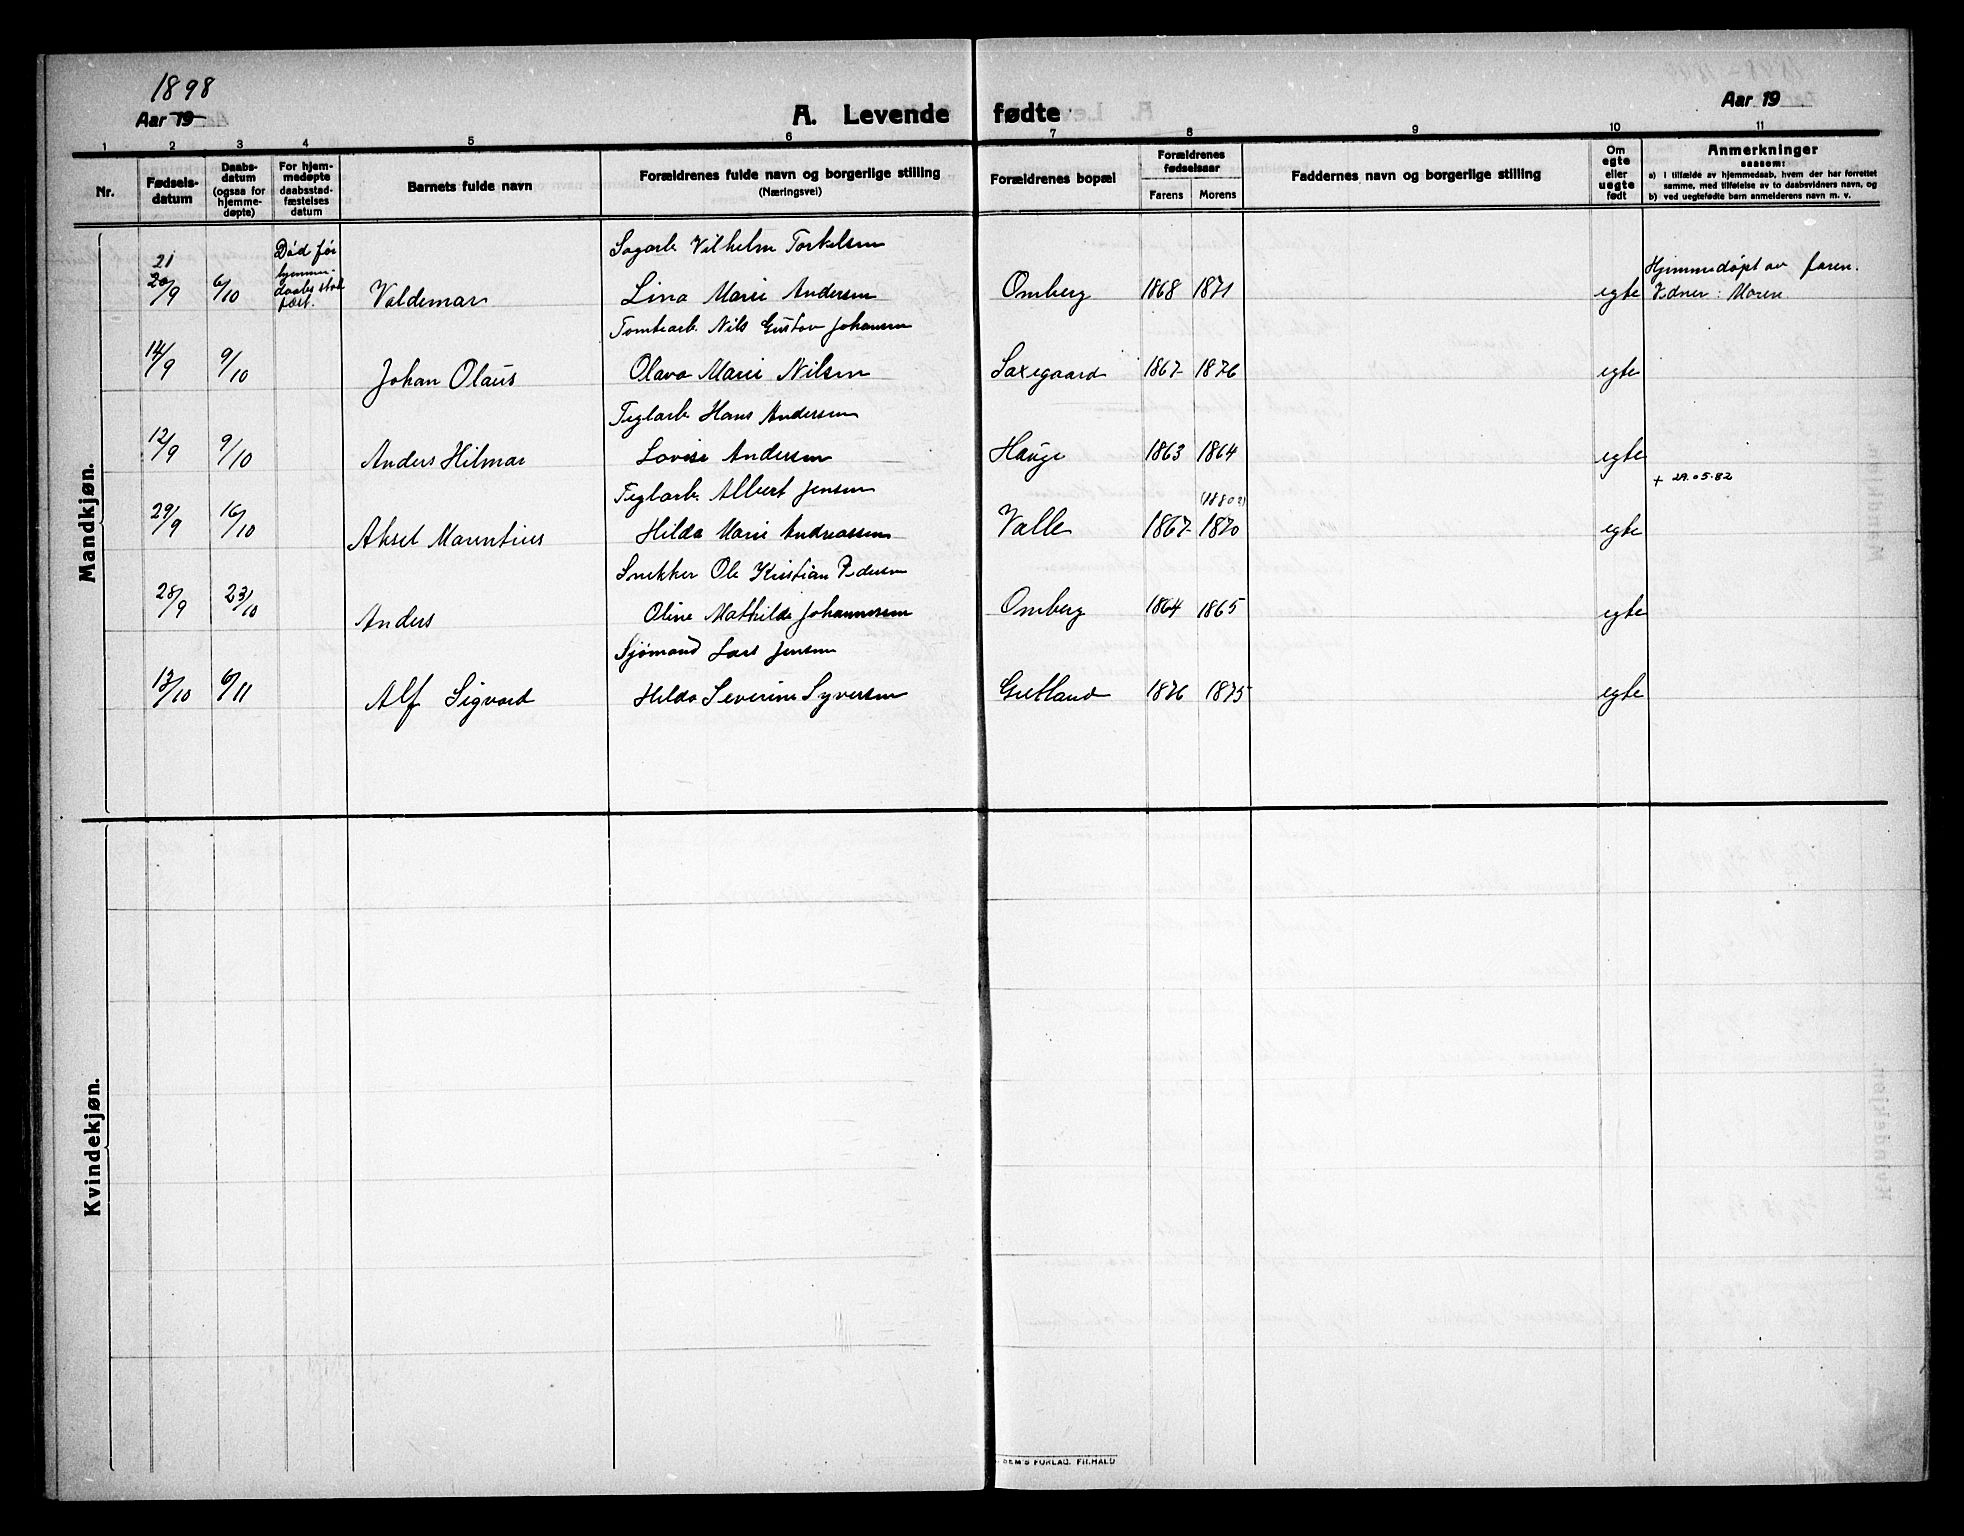 1898
Aar 19
A. Levende fødte
Aar 19
1 2 3 4 5 6 7 8 9 10 11
Nr.
Fødsels-
datum
Daabs-
datum
(ogsaa for
hjemme-
døpte)
For hjem-
medøpte
daabsstad-
fæstelses
datum
Barnets fulde navn
Forældrenes fulde navn og borgerlige stilling
(Næringsvei)
Forældrenes bopæl
Forældrenes
fødselsaar
Farens Morens
Faddernes navn og borgerlige stilling
Om
egte
eller
uegte
født
Anmerkninger
saasom:
a) i tilfælde av hjemmedaab, hvem der har forrettet
samme, med tilføielse av to daabsvidners navn, og
b) ved uegtefødte barn anmelderens navn m. v.
Mandkjøn.
Sagarb. Vilhelm Torkelsen
21
20/9 6/10 Død før
hjemme-
daabs stad
fæst.
Valdemar Lina Marie Andersen Omberg 1868 1871 egte
Hjemmedøpt av faren.
Vidner: Moren
Tomtearb. Nils Gustav Johansen
14/9 9/10 Johan Olaus Olava Marie Nilsen Saxegaard 1867 1876 egte
Teglarb. Hans Andersen
12/9 9/10 Anders Hilmar Lovise Andersen Hauge 1863 1864 egte
+ 29.05.82
Teglarb. Albert Jensen
(1880?)
29/9 16/10 Aksel Marentius Hilda Marie Andreassen Valle 1867 1870 egte
Snekker Ole Kristian Pedersen
28/9 23/10 Anders Oline Mathilde Johannesen Omberg 1864 1865 egte
Sjømand Lars Jensen
13/10 6/11 Alf Sigvard Hilda Severine Syversen Gretland 1876 1875 egte
Kvindekjøn.
DEM'S FORLAG. FR.HALD